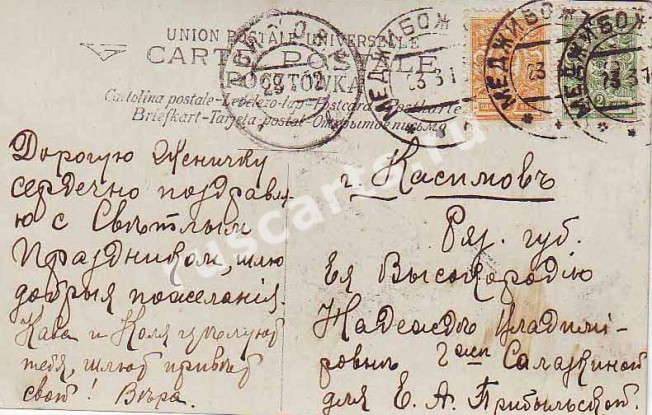 UNION POSTALE UNIVERSELLE
CARTE POSTALE
POCZTÓWKA
Cartolina postale-Levelező-lap-Postcard-Postkarte
Briefkart-Tarjeta postal-Открытое письмо
МЕДЖИБОЖ
МЕДЖИБОЖ
Дорогую Женичку
сердечно поздравл-
ю с Свѣтлым
Праздником, шлю
добрыя пожеланія.
и Коля цѣлуют
тебя, шлют привѣт
свой! Вѣра.
г. Касимовъ
Ряз. губ.
Ея Высокородію
Надеждѣ Владимі-
ровнѣ Г-жѣ
для Е. А. Прибыльской.
ruscards.ru